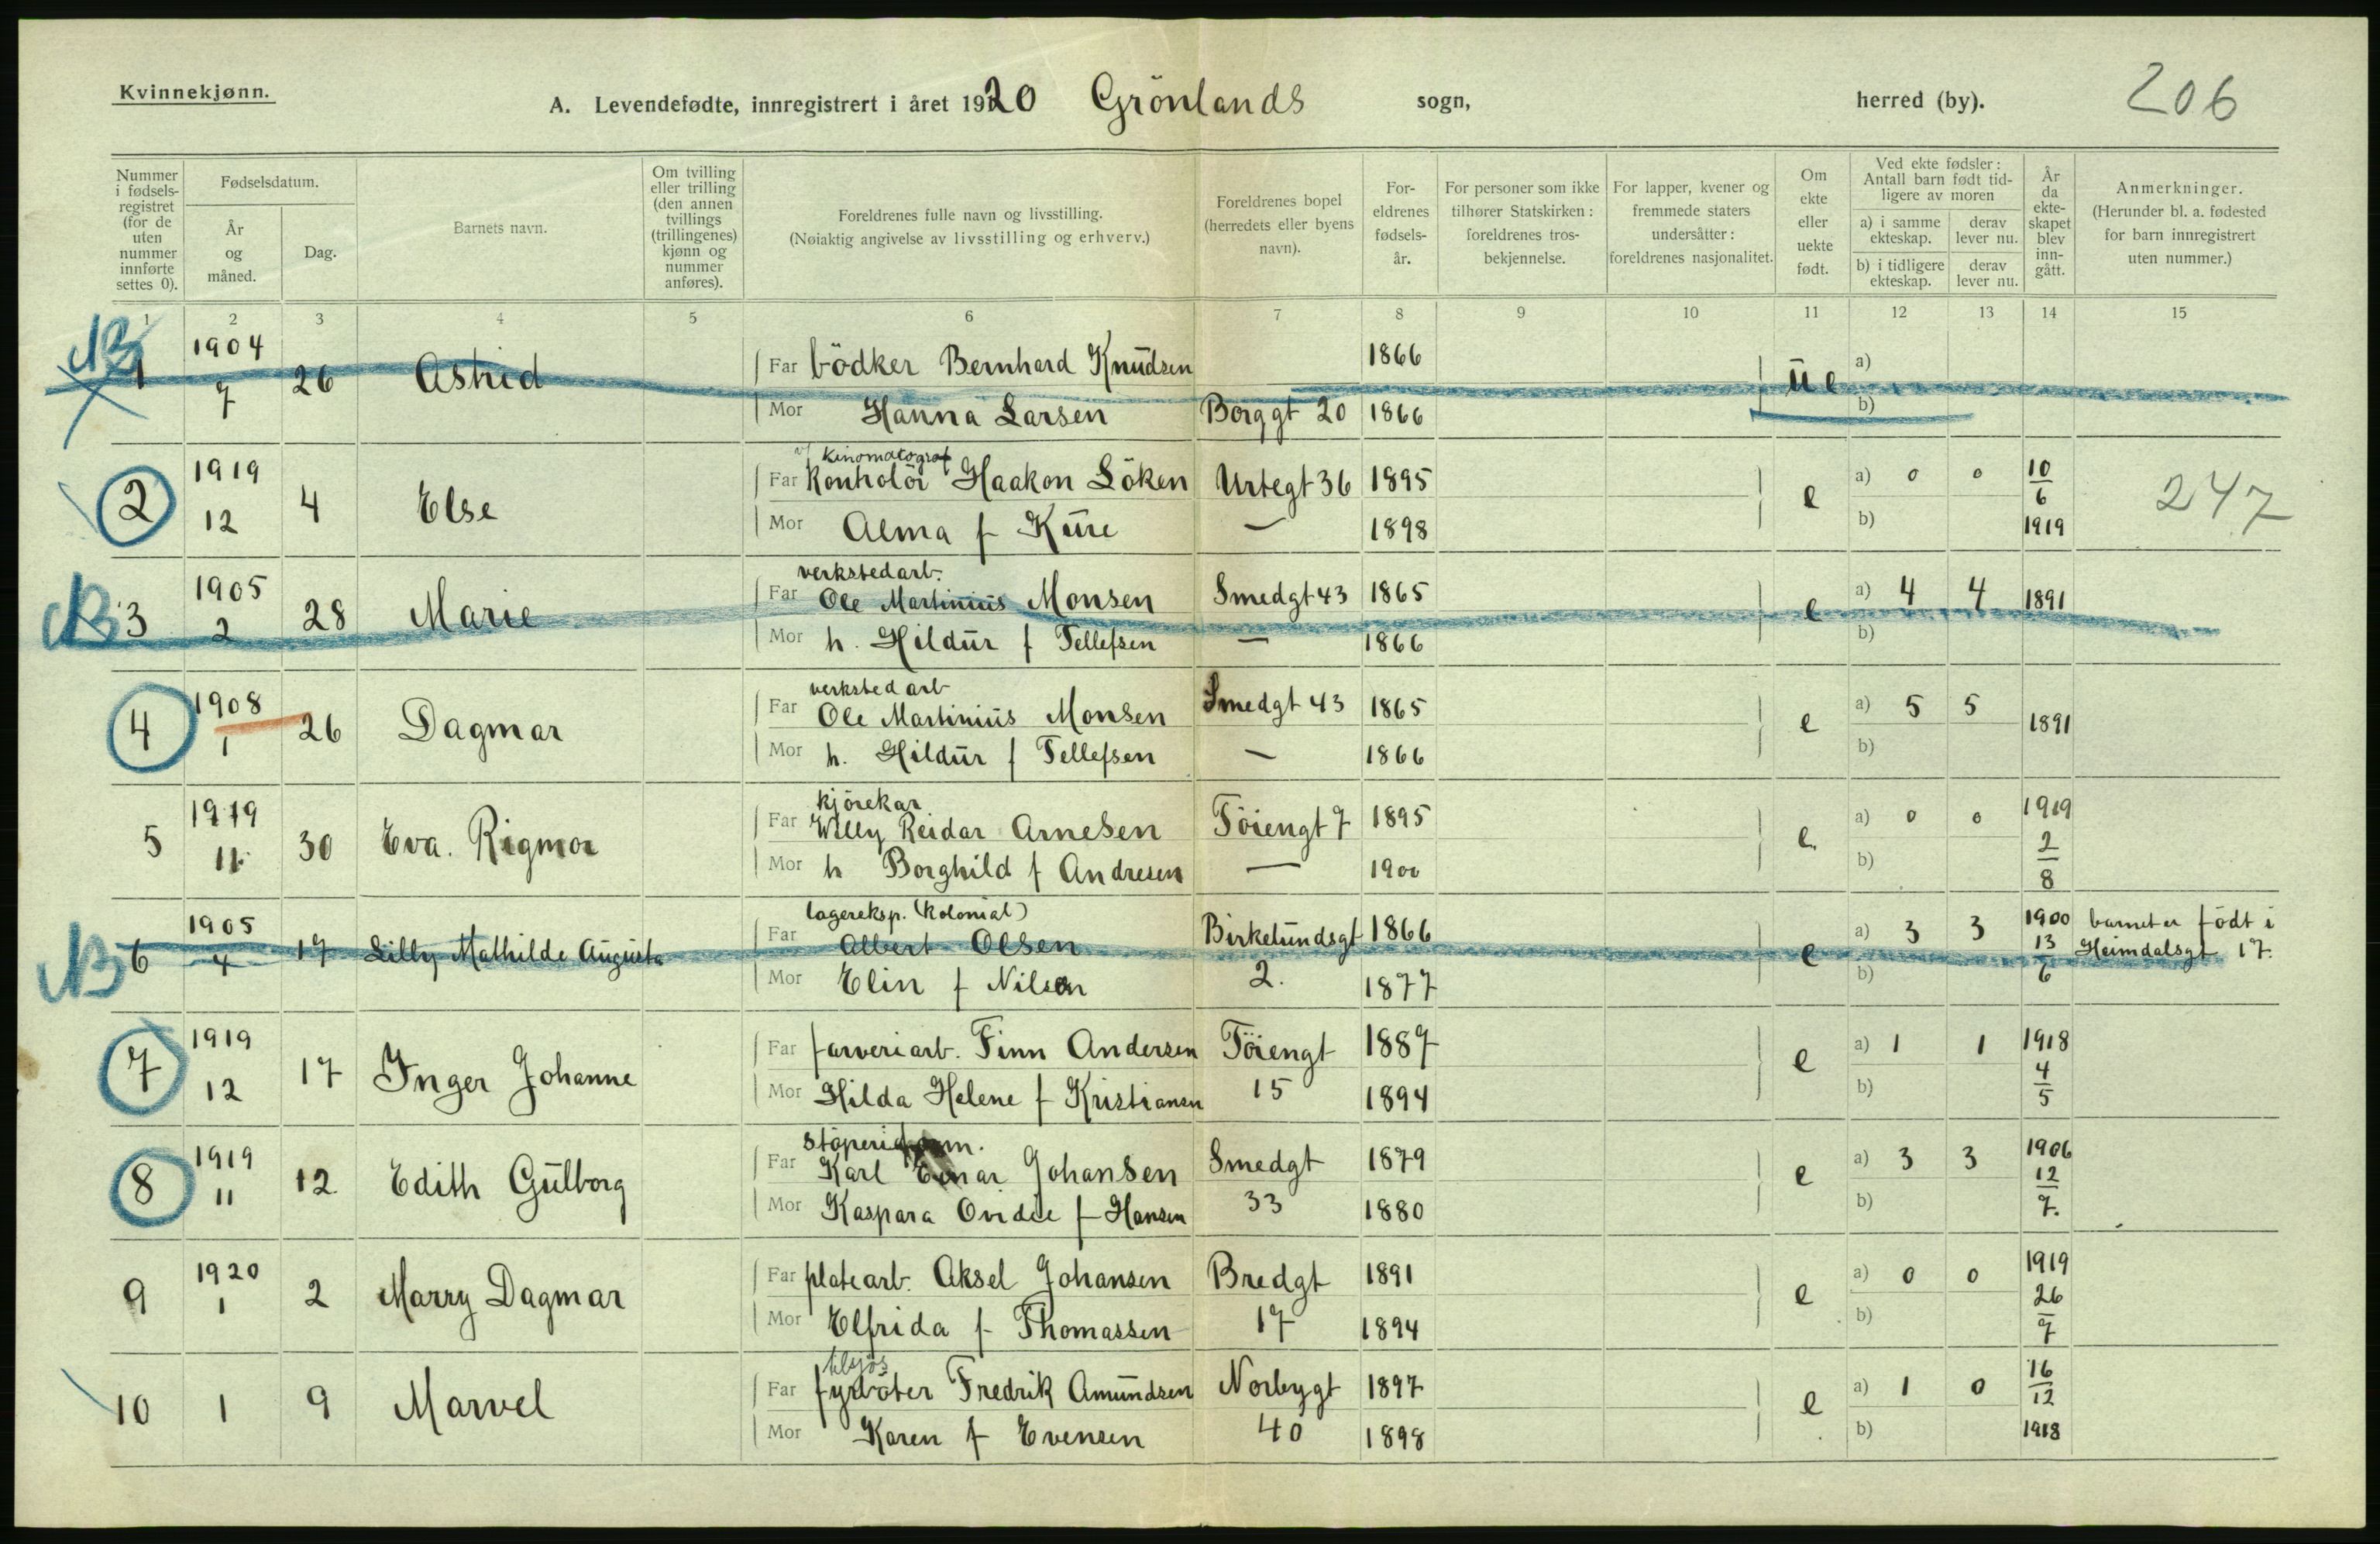 Kvinnekjønn.
A. Levendefødte, innregistrert i året 1920 Grönlands sogn, herred (by). 206
Nummer i fødsels-registret (for de uten nummer innførte settes 0).
Fødselsdatum.
År og måned.
Dag.
Barnets navn.
Om tvilling eller trilling (den annen tvillings (trillingenes) kjønn og nummer anføres).
Foreldrenes fulle navn og livsstilling.
(Nøiaktig angivelse av livsstilling og erhverv.)
Foreldrenes bopel (herredets eller byens navn).
For-eldrenes fødsels-år.
For personer som ikke tilhører Statskirken: foreldrenes tros-bekjennelse.
For lapper, kvener og fremmede staters undersåtter: foreldrenes nasjonalitet.
Om ekte eller uekte født.
Ved ekte fødsler: Antall barn født tid-ligere av moren
a) i samme ekteskap.
derav lever nu.
b) i tidligere ekteskap.
derav lever nu.
År da ekte-skapet blev inn-gått.
Anmerkninger.
(Herunder bl. a. fødested for barn innregistrert uten nummer.)
1 2 3 4 5 6 7 8 9 10 11 12 13 14 15
NB 1 1904 7 26 Astrid
Far bödker Bernhard Knudsen 1866 ue a)
Mor Hanna Larsen Borggt 20 1866 b)
2 1919 12 4 Else
v/ kinomatograf
Far kontrolör Haakon Löken Urtegt 36 1895 e a) 0 0 10/6 1919 247
Mor Alma f Kure — 1898 b)
NB 3 1905 2 28 Marie
verkstedarb.
Far Ole Martinius Monsen Smedgt 43 1865 e a) 4 4 1891
Mor h. Hildur f Tellefsen — 1866 b)
4 1908 1 26 Dagmar
verkstedarb
Far Ole Martinius Monsen Smedgt 43 1865 e a) 5 5 1891
Mor h. Hildur f Tellefsen — 1866 b)
5 1919 11 30 Eva. Rigmor
kjörekar
Far Willy Reidar Arnesen Töiengt 7 1895 e. a) 0 0 1919 2/8
Mor h Borghild f Andresen — 1900 b)
NB 6 1905 4 17 Lilly Mathilde Augusta
lagereksp. (kolonial)
Far Albert Olsen Birkelundsgt 1866 e a) 3 3 1900 13/6 barnet er födt i
Heimdalsgt 17.
Mor Elin f Nilsen 2. 1877 b)
7 1919 12 17 Inger Johanne
Far farveriarb. Finn Andersen Töiengt 1887 e a) 1 1 1918 4/5
Mor Hilda Helene f Kristiansen 15 1894 b)
8 1919 11 12 Edith Gulborg
Far Karl Einar Johansen Smedgt 1879 e a) 3 3 1906 12/7.
Mor Kaspara Ovidie f Hansen 33 1880 b)
9 1920 1 2 Marry Dagmar
Far platearb. Aksel Johansen Bredgt 1891 e a) 0 0 1919 26/7
Mor Elfrida f Thomassen 17 1894 b)
10 1 9 Marvel
Far fyrböter Fredrik Amundsen Norbygt 1897 e a) 1 0 16/12 1918
Mor Karen f Evensen 40 1898 b)